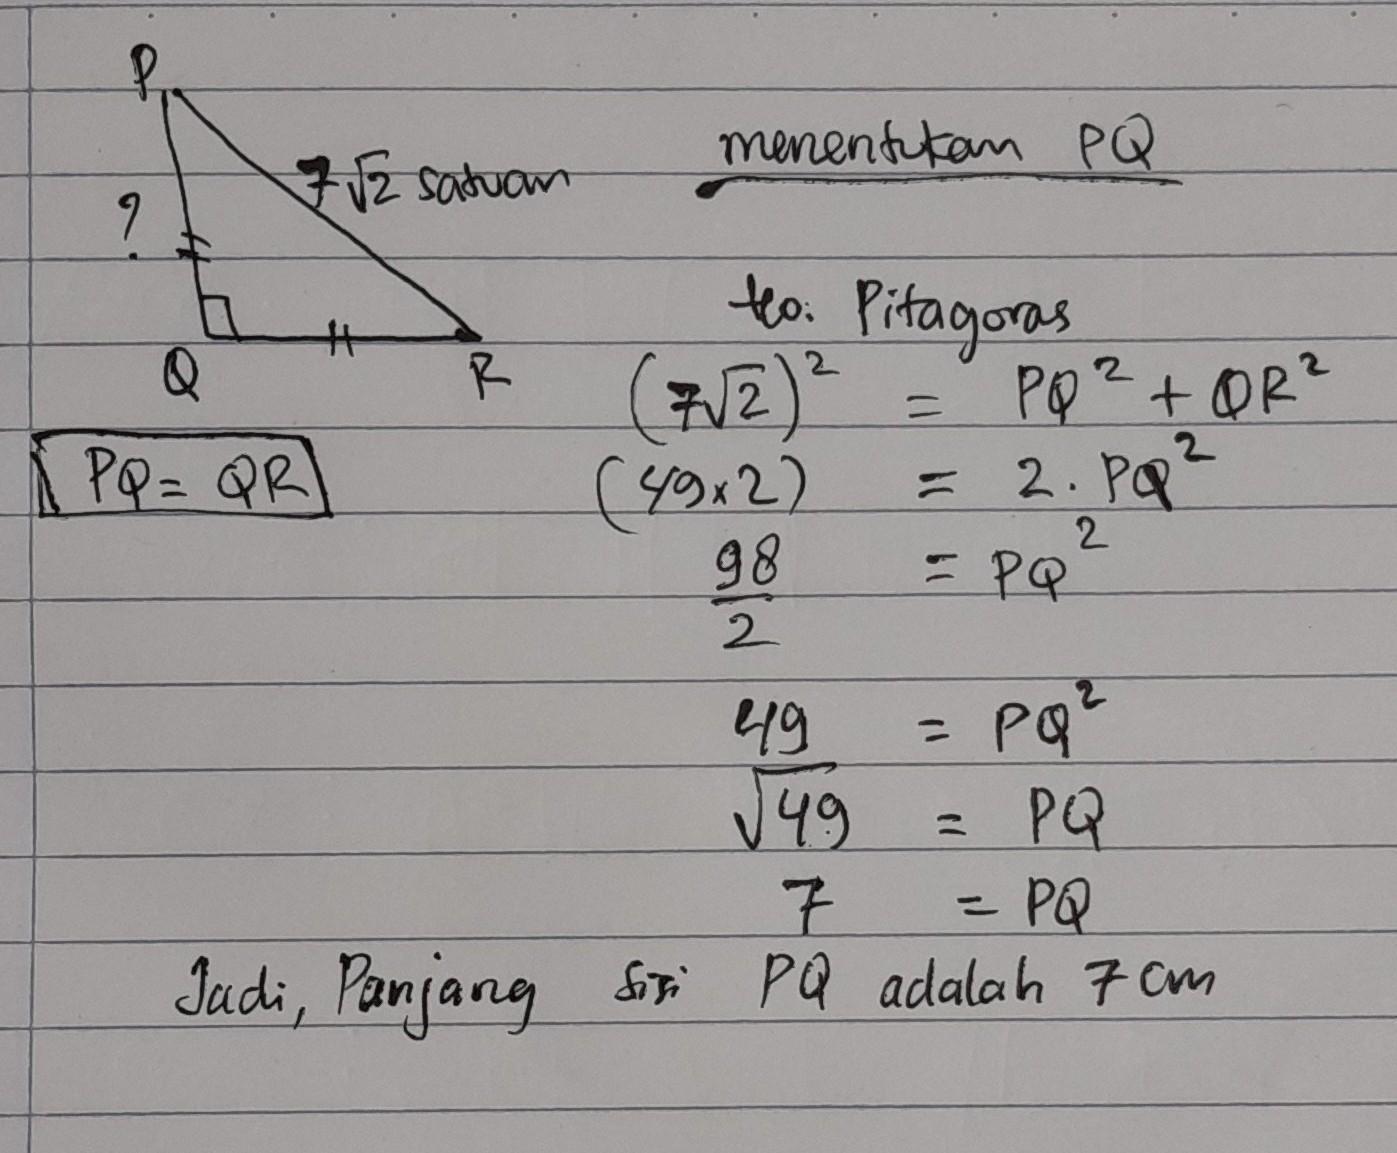 P
7√2 satuan
?
Q
R
PQ = QR
menentukan PQ
teo. Pitagoras
(7√2)² = PQ² + QR²
(49x2) = 2. PQ²
98/2 = PQ²
49 = PQ²
√49 = PQ
7 = PQ
Jadi, Panjang sisi PQ adalah 7 cm